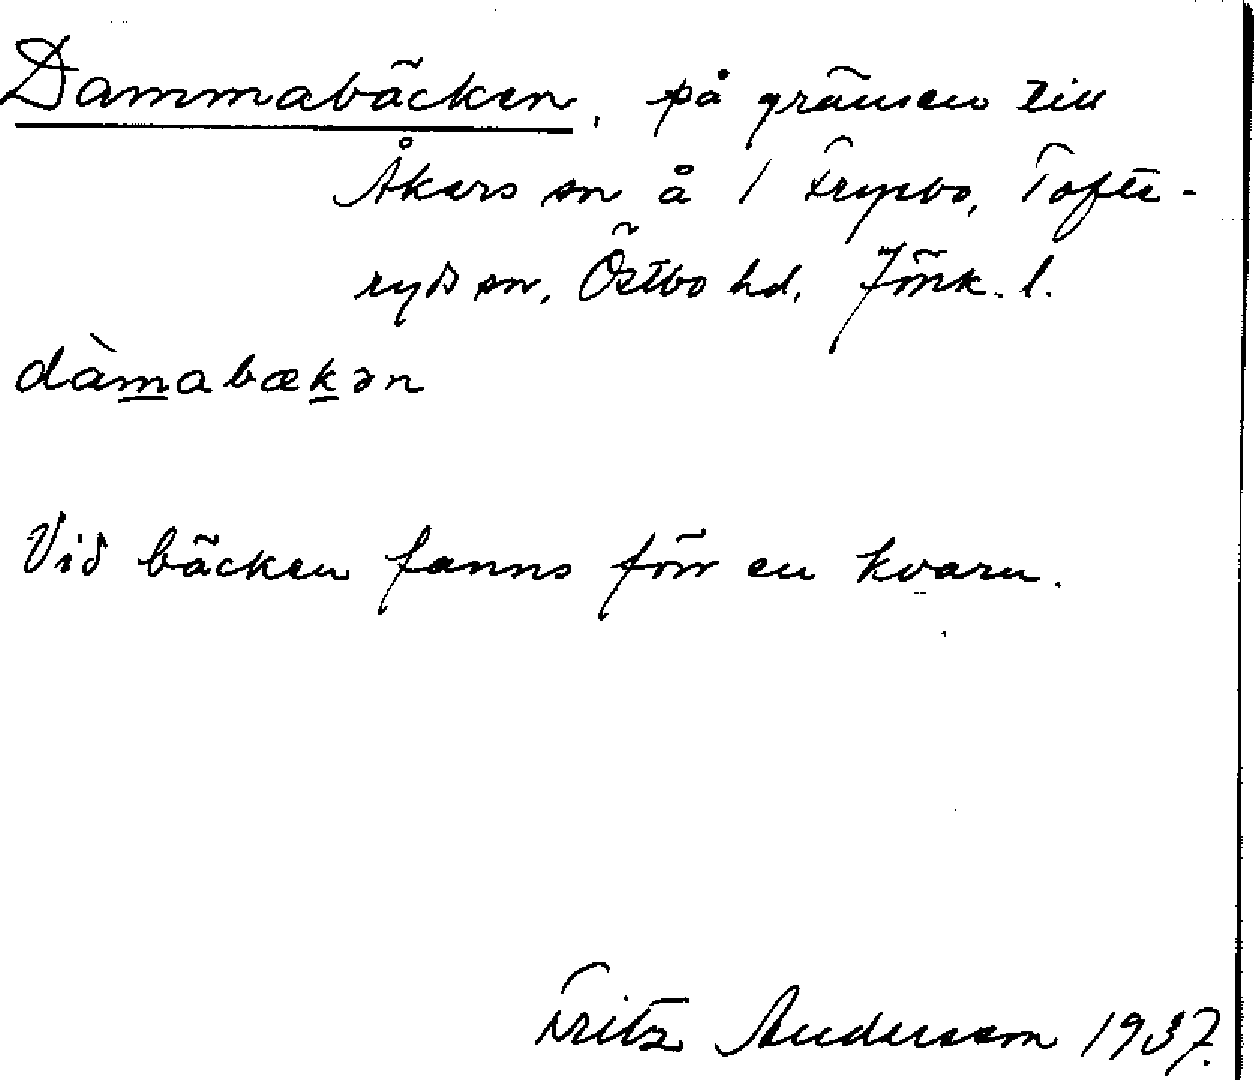 Dammabäcken, på gränsen till
Åkers sn å 1 Frypbo, Tofte-
ryds sn, Östbo hd, Jönk. l.
dàm̲abæk̲ən
Vid bäcken fanns förr en kvarn.
Fritz Andersson 1937.